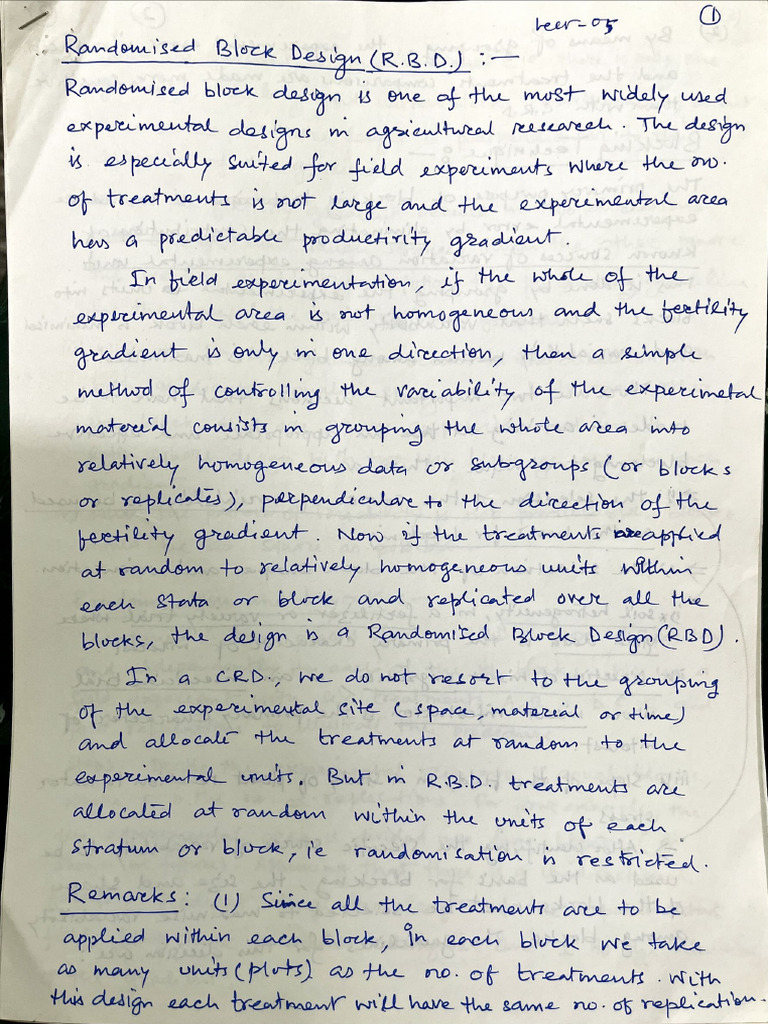 Lecr-05
①
Randomised Block Design (R.B.D.) :—
Randomised block design is one of the most widely used
experimental designs in agricultural research. The design
is especially suited for field experiments where the no.
of treatments is not large and the experimental area
has a predictable productivity gradient.
In field experimentation, if the whole of the
experimental area is not homogeneous and the fertility
gradient is only in one direction, then a simple
method of controlling the variability of the experimetal
material consists in grouping the whole area into
relatively homogeneous data or subgroups (or blocks
or replicates), perpendicular to the direction of the
fertility gradient. Now if the treatments are applied
at random to relatively homogeneous units within
each stata or block and replicated over all the
blocks, the design is a Randomised Block Design (RBD).
In a CRD., we do not resort to the grouping
of the experimental site (space, material or time)
and allocate the treatments at random to the
experimental units. But in R.B.D. treatments are
allocated at random within the units of each
stratum or block, ie randomisation is restricted.
Remarks: (1) Since all the treatments are to be
applied within each block, in each block we take
as many units (plots) as the no. of treatments. With
this design each treatment will have the same no. of replication.